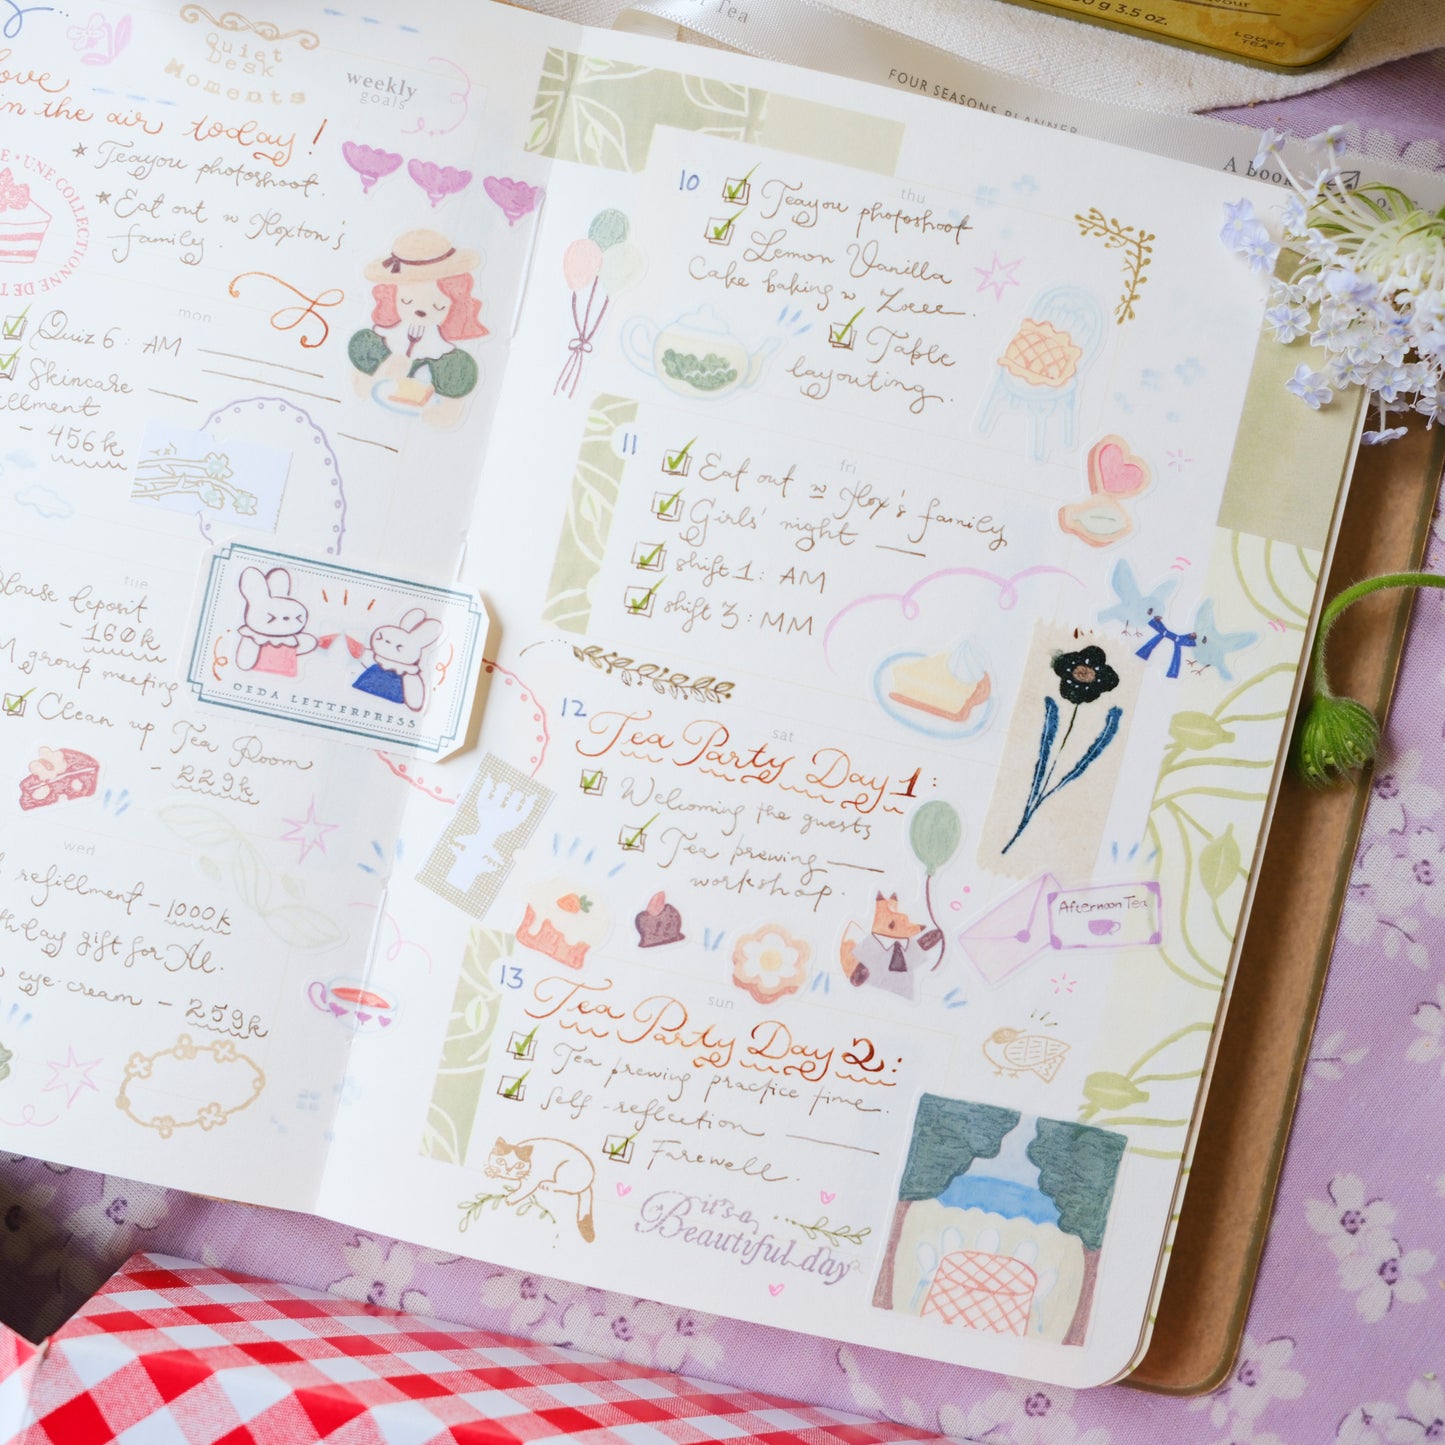 Tea
FOUR SEASONS PLANNER
A book
0 g 3.5 oz.
LOOSE
TEA
Quiet
Desk
Moments
weekly
goals
love
in the air today!
* Teayou photoshoot.
* Eat out w Hoxton's
family.
UNE COLLECTIONNE DE T
mon
Quiz 6: AM
Skincare
illment
- 456k
tue
louse deposit
- 160k
M group meeting
Clean up Tea Room
- 229k
OEDA LETTERPRESS
wed
refillment - 1000k
thday gift for Al.
eye-cream - 259k
10
thu
Teayou photoshoot
Lemon Vanilla
Cake baking w
Table
layouting.
11
fri
Eat out w Hox's family
Girls' night
shift 1: AM
shift 3: MM
12
sat
Tea Party Day 1:
Welcoming the guests
Tea brewing
workshop.
Afternoon Tea
13
sun
Tea Party Day 2:
Tea brewing practice time.
Self-reflection
Farewell.
it's a
Beautiful day